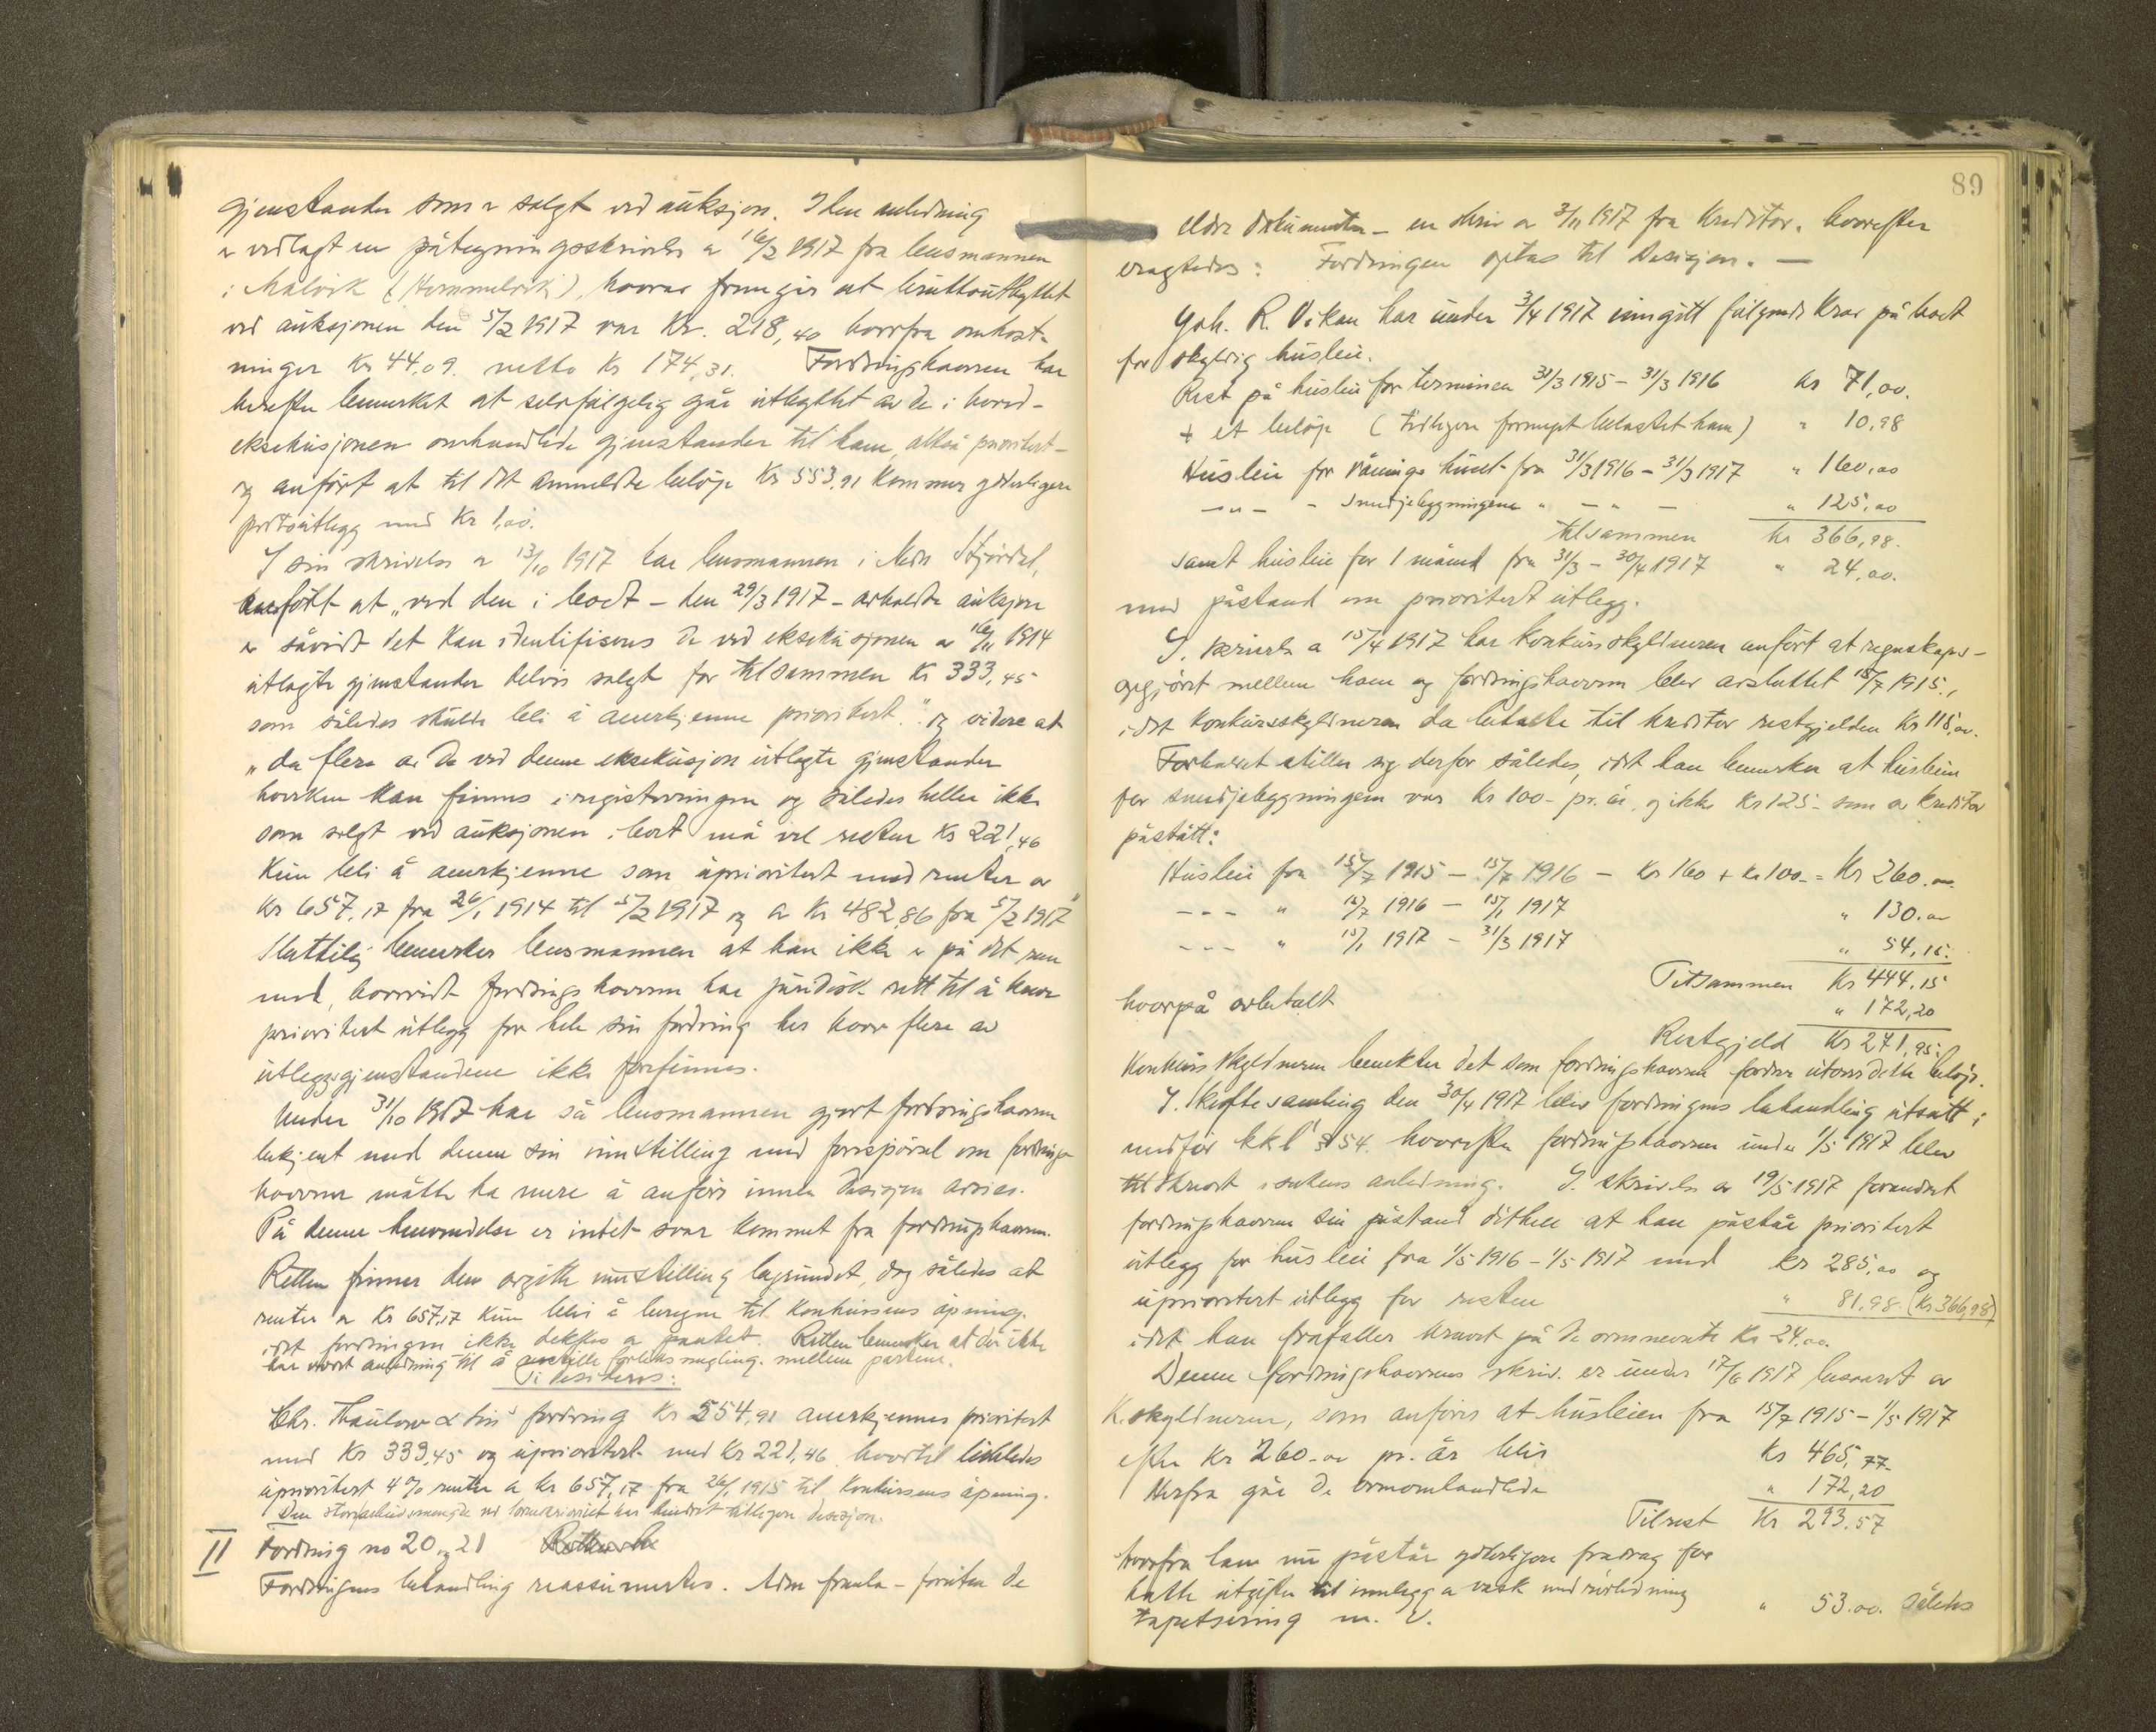 gjenstander som er solgt ved auksjon. I den anledning
er vedlagt en påtegningsskrivelse av 16/2 1917 fra lensmannen
i Malvik (Hommelvik), hvorav fremgår at bruttoutbyttet
ved auksjonen den 5/2 1917 var Kr. 218,40 hvorfra omkost-
ninger Kr 44,09. netto Kr 174,31. Fordringshaveren har
herefter bemerket at selvfølgelig går utbyttet av de i hoved-
eksekusjonen omhandlede gjenstander til ham, altså prioritert -
og anført at til det anmeldte beløp Kr 553,91 kommer ytterligere
portoutlegg med Kr 1,00.
I sin skrivelse av 13/10 1917 har lensmannen i Nedre Stjørdal,
anført at „ved den i boet - den 29/3 1917 - avholdte auksjon
er såvidt det kan identifiseres de ved eksekusjonen av 16/11 1914
utlagte gjenstander delvis solgt for tilsammen Kr 333,45
som således skulde bli å anerkjenne prioritert." og videre at
„da flere av de ved denne eksekusjon utlagte gjenstander
hverken kan finnes i registreringen og således heller ikke
som solgt ved auksjonen i boet må vel resten Kr 221,46
kun bli å anerkjenne som uprioritert med renter av
Kr 657,17 fra 26/1 1914 til 5/2 1917 og av Kr 482,86 fra 5/2 1917"
Sluttelig bemerker lensmannen at han ikke er på det rene
med, hvorvidt fordringshaveren har juridisk rett til å kreve
prioritert utlegg for hele sin fordring her hvor flere av
utleggsgjenstandene ikke forefinnes.
Under 31/10 1917 har så lensmannen gjort fordringshaveren
bekjent med denne sin innstilling med forespørsel om fordrings-
haveren måtte ha mere å anføre innen desisjon avsies.
På denne henvendelse er intet svar kommet fra fordringshaveren.
Retten finner den avgitte innstilling begrundet, dog således at
renter av Kr 657,17 kun blir å beregne til konkursens åpning.
idet fordringen ikke dekkes av pantet. Retten bemerker at der ikke
har vært anledning til å anstille forliksmegling mellem partene.
Ti desideres:
Chr. Thaulow & Søns fordring Kr 554,91 anerkjennes prioritert
med Kr 333,45 og uprioritert med Kr 221,46 hvortil
uprioritert 4% renter av Kr 657,17 fra 26/1 1915 til konkursens åpning.
Den store arbeidsmengde ved har hindret tidligere desisjon.
II Fordring no 20 og 21
Fordringens behandling reassumertes. Adm fremla - foruten de
89
eldre dokumenter - en skriv av 3/11 1917 fra kreditor. hvorefter
eragtedes: Fordringen optas til desisjon. —
Joh. R. Vikan har under 3/4 1917 inngitt følgende krav på boet
for skyldig husleie.
Rest på husleie for terminen 31/3 1915 - 31/3 1916 Kr 71,00.
+ et beløp (tidligere fornegtet belastet ham) " 10,98
Husleie for våningshuset fra 31/3 1916 - 31/3 1917 " 160,00
—"— - smedjebygningene " — " — " 125,00
tilsammen Kr 366,98.
samt husleie for 1 måned fra 31/3 - 30/4 1917 " 24,00.
med påstand om prioritert utlegg.
I skrivelse av 15/4 1917 har konkursskyldneren anført at regnskaps-
opgjøret mellem ham og fordringshaveren blev avsluttet 15/7 1915.,
idet konkursskyldneren da betalte til kreditor restgjelden Kr 115,00.
Forholdet stiller sig derfor således, idet han bemerker at husleien
for smedjebygningen var Kr 100- pr. år, og ikke Kr 125- som av kreditor
påstått:
Husleie fra 15/7 1915 - 15/7 1916 - Kr 160 + Kr 100- = Kr 260.00.
--- " 15/7 1916 - 15/1 1917 " 130.00
--- " 15/1 1917 - 31/3 1917 " 54,15.
Tilsammen Kr 444,15
hvorpå avbetalt " 172,20
Restgjeld Kr 271,95.
Konkursskyldneren benekter det som fordringshaveren fordrer utover dette beløp.
I skiftesamling den 30/4 1917 blev fordringens behandling utsatt i
medfør kkl § 54. hvorefter fordringshaveren under 1/5 1917 blev
tilskrevet i sakens anledning. I skrivelse av 19/5 1917 forandret
fordringshaveren sin påstand dithen at han påstår prioritert
utlegg for husleie fra 1/5 1916 - 1/5 1917 med Kr 285,00 og
uprioritert utlegg for resten " 81,98. (Kr 366,98)
idet han frafaller kravet på de ovennevnte Kr 24,00.
Denne fordringshaverens skriv. er under 17/6 1917 besvaret av
K.skyldneren, som anfører at husleien fra 15/7 1915 - 1/5 1917
efter Kr 260.00 pr. år blir Kr 465,77-
Herfra går de ovenomhandlede " 172,20
Tilrest Kr 293,57
hvorfra han nu påstår ytterligere fradrag for
hatte utgifter til innlegg av vask med rørledning
tapetsering m. v. " 53.00. således